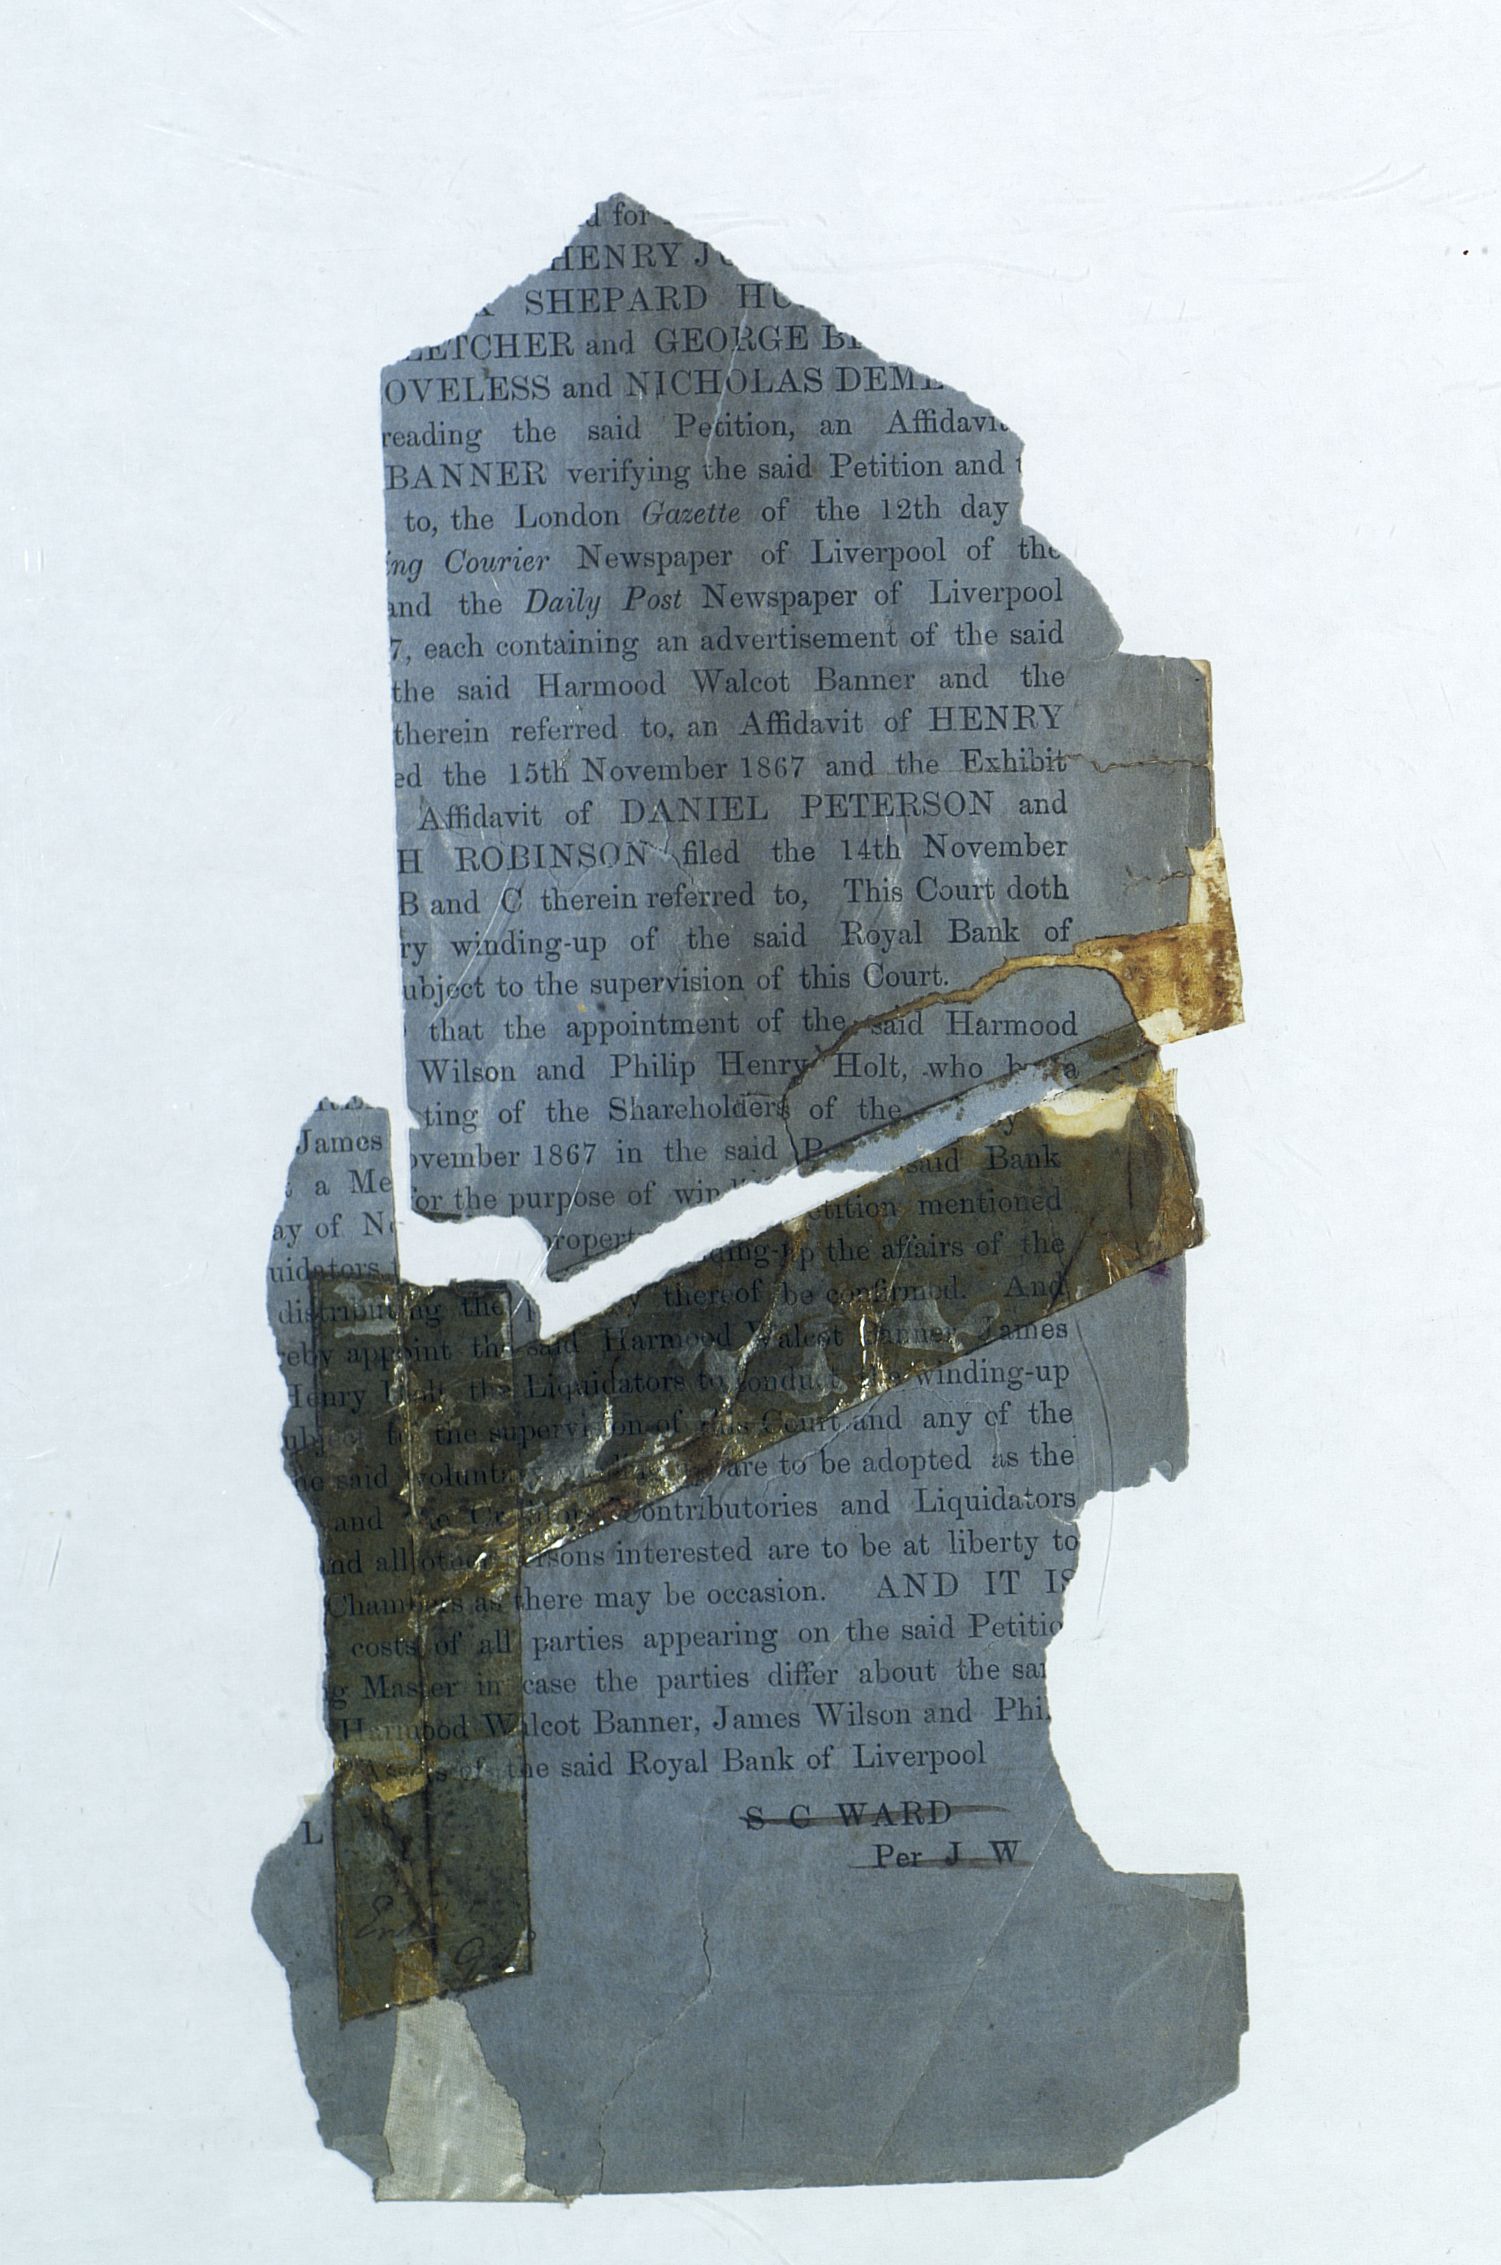 d for
HENRY J
SHEPARD HU
LETCHER and GEORGE B
OVELESS and NICHOLAS DEME
reading the said Petition, an Affidavit
BANNER verifying the said Petition and t
to, the London Gazette of the 12th day
ing Courier Newspaper of Liverpool of the
and the Daily Post Newspaper of Liverpool
7, each containing an advertisement of the said
the said Harmood Walcot Banner and the
therein referred to, an Affidavit of HENRY
ed the 15th November 1867 and the Exhibit
Affidavit of DANIEL PETERSON and
H ROBINSON filed the 14th November
B and C therein referred to, This Court doth
ry winding-up of the said Royal Bank of
ubject to the supervision of this Court.
that the appointment of the said Harmood
Wilson and Philip Henry Holt, who
ting of the Shareholders of the
James ovember 1867 in the said
a Me for the purpose of said Bank
ay of No propert etition mentioned
uidators ding-up the affairs of the
distributing the thereof be confirmed. And
reby appoint the said Harmood Walcot Banner James
Henry Holt the Liquidators to conduct the winding-up
ubject to the supervision of this Court and any of the
he said voluntary are to be adopted as the
and the Creditors Contributories and Liquidators
and all other persons interested are to be at liberty to
Chambers as there may be occasion. AND IT IS
costs of all parties appearing on the said Petitio
g Master in case the parties differ about the sa
Harmood Walcot Banner, James Wilson and Phi
Assets of the said Royal Bank of Liverpool
S C WARD
L
Per J W